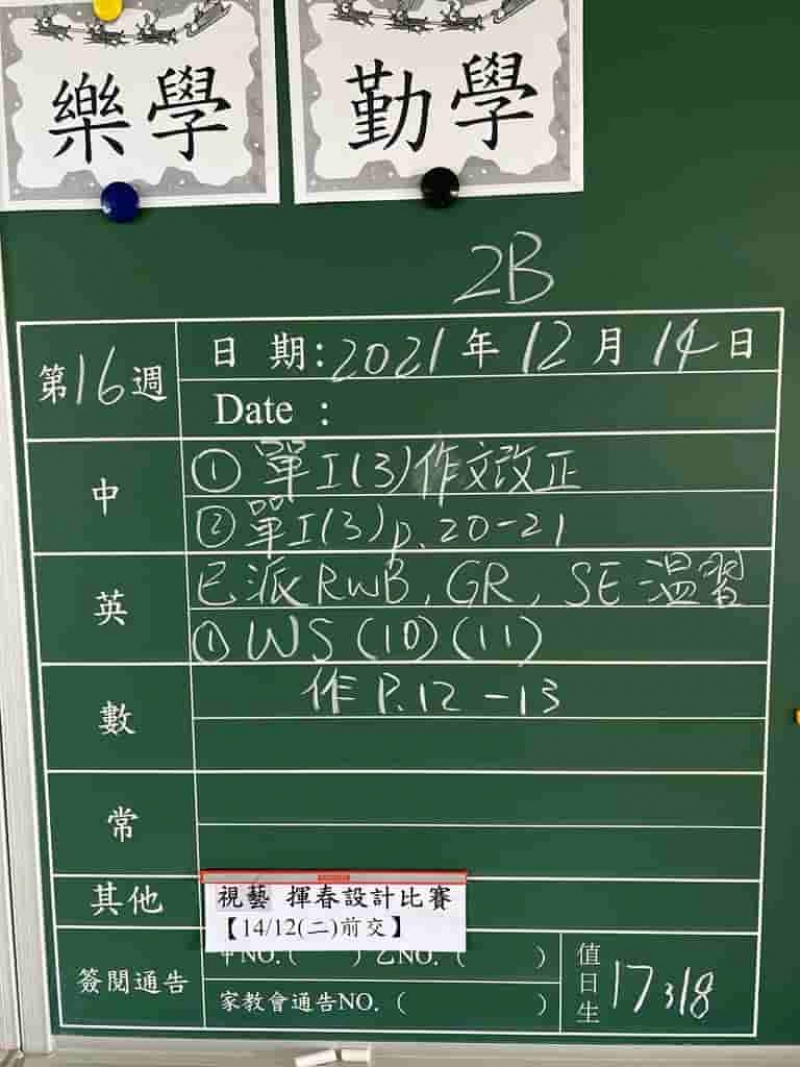 樂學
勤學
2B
第16週
日 期：2021年12月14日
Date ：
中
① 單I(3)作文改正
② 單I(3)p.20-21
英
已派RWB, GR, SE 温習
① WS (10)(11)
數
作P.12-13
常
其他
視藝 揮春設計比賽
【14/12(二)前交】
簽閱通告
甲NO.( ) 乙NO. ( )
家教會通告NO. ( )
值日生
17 318